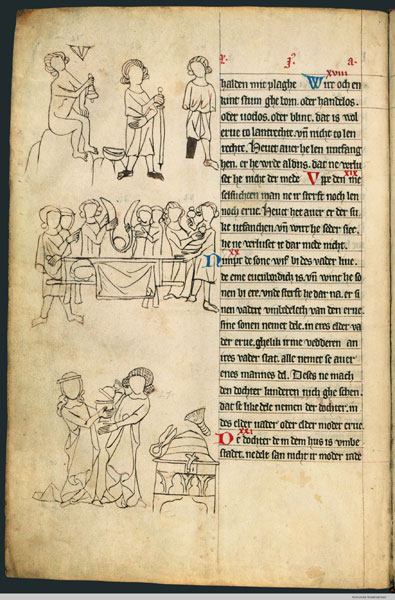 xviii
halden mit plaghe Wirt och en
kint stum ghe born. oder handelos.
oder voclos. oder blint. dat is wol
erue to lantrechte. vñ nicht to len
rechte. Heuet auer he len untfang
hen. er he worde aldus. dat ne verlu
set he nicht der mede Vppe den me
xix
selsuchten man ne ir sterft noch len
noch erue. Heuet het auer er der su
ke untfanchen. vñ wirt he seder siec.
he ne verluset is dar mede nicht.
xx
Nimpt de sone wif bi des vader liue.
de eme euenbordich is. vñ wint he so
nen bi ere. vnde sterft he dar na. er si
nen vadere vmbedelech van den erue.
sine sonen nemet dele. in eres elder va
der erue. ghelik irme vedderen an
ires vader stat. alle nemet se auer
enes mannes del. Deses ne mach
den dochter kinderen nich ghe schen.
dat se like dele nemen der dochter. in
des elder vader oder elder moder erue.
xxi
De dochter de in dem hus is vmbe
stadet. nedelt san nicht ir moder rade